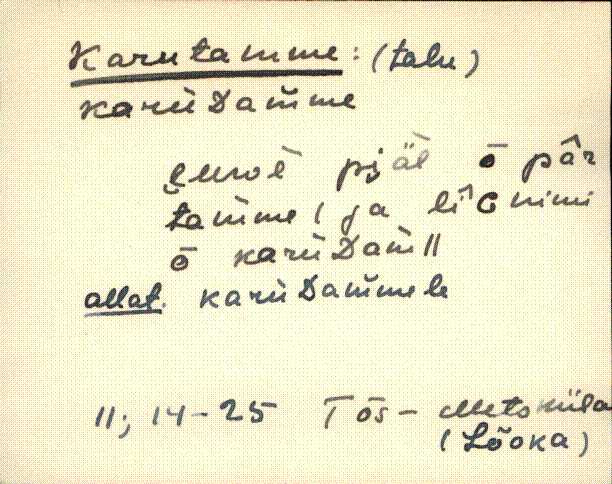 Karutamme: (talu)
karùDam̀me
pjäl ō pâr
tam̀me / ja lîc nimi
ō karùDam̀ //
allat. karùDam̀mele
11; 14-25 Tõs - Metsküla
(Lõoka)